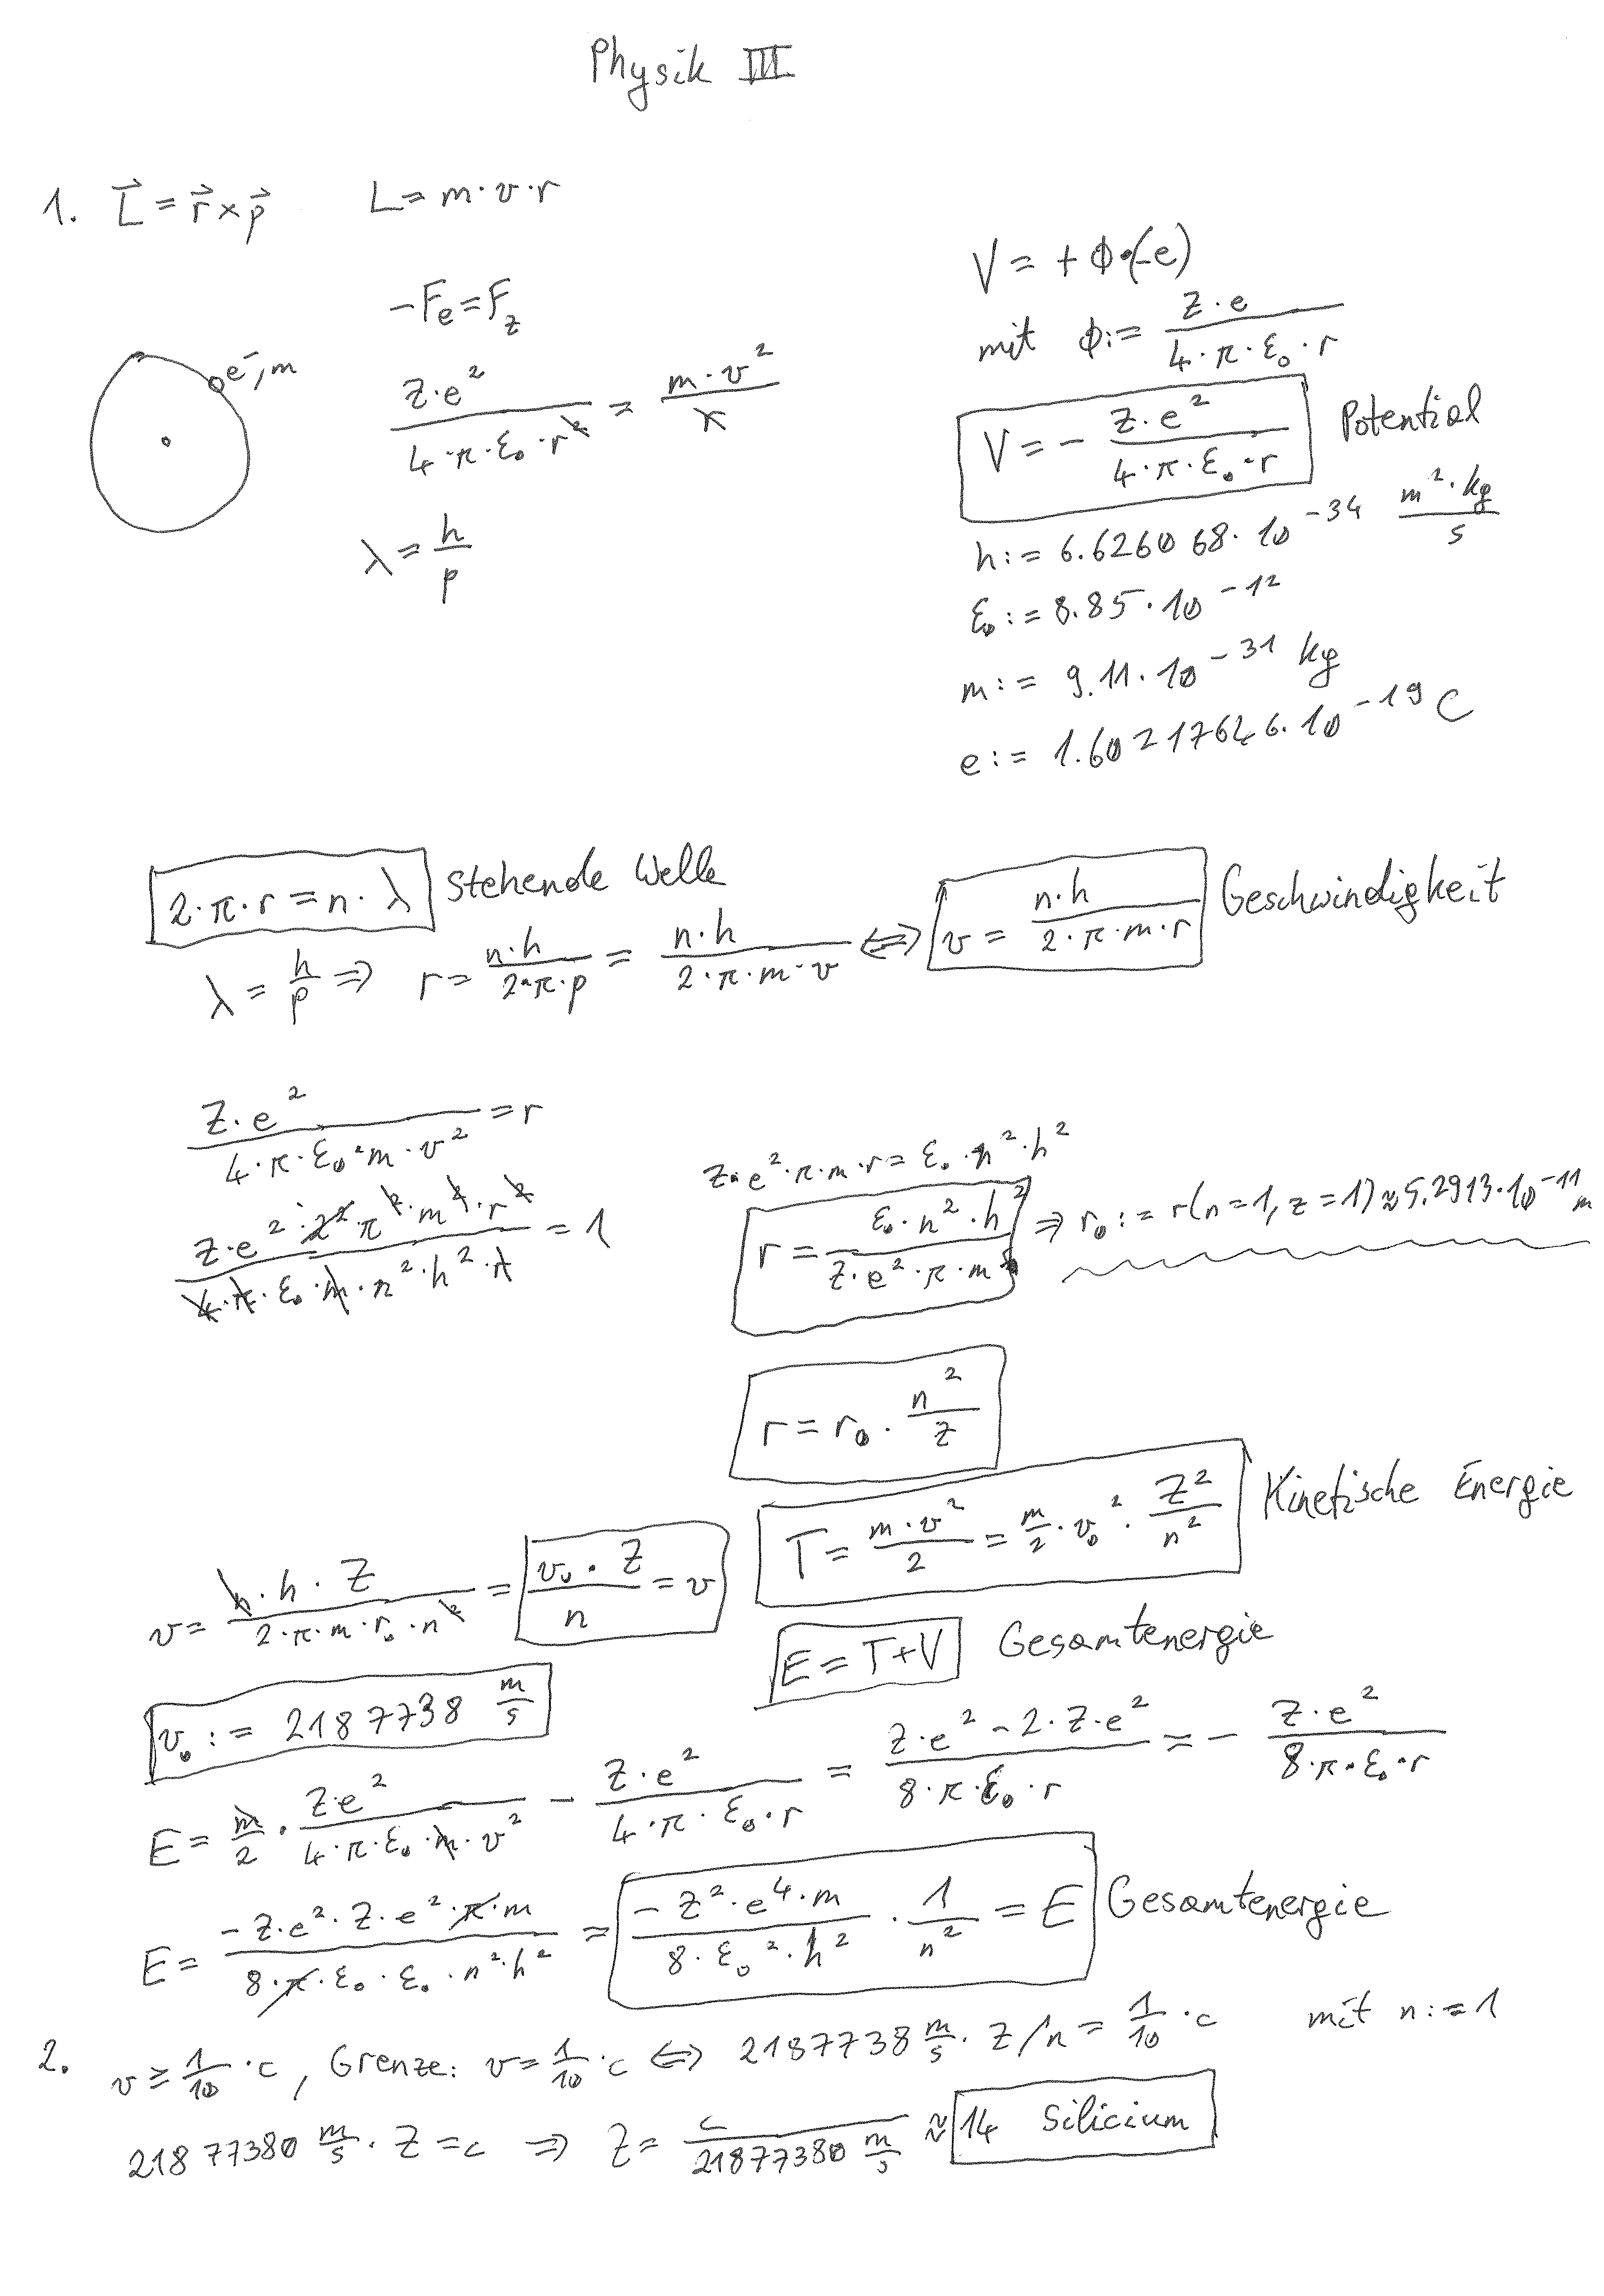 Physik III
1. L⃗ = r⃗ × p⃗    L = m·v·r
V = + ϕ·(-e)
-F_e = F_z
mit ϕ := Z·e / (4·π·ε₀·r)
e⁻, m
Z·e² / (4·π·ε₀·r²) = m·v² / r
V = - Z·e² / (4·π·ε₀·r)    Potential
λ = h/p
h := 6.626068·10⁻³⁴ m²·kg / s
ε₀ := 8.85·10⁻¹²
m := 9.11·10⁻³¹ kg
e := 1.60217646·10⁻¹⁹ C
2·π·r = n·λ    Stehende Welle
λ = h/p ⇒ r = n·h / (2·π·p) = n·h / (2·π·m·v) ⇔ v = n·h / (2·π·m·r)    Geschwindigkeit
Z·e² / (4·π·ε₀·m·v²) = r
Z·e²·π·m·r = ε₀·n²·h²
Z·e²·2²·π²·m²·r² / (4·π·ε₀·m·n²·h²·r) = 1
r = ε₀·n²·h² / (Z·e²·π·m) ⇒ r₀ := r(n=1, z=1) ≈ 5.2913·10⁻¹¹ m
r = r₀ · n²/Z
T = m·v²/2 = m/2 · v₀² · Z²/n²    Kinetische Energie
v = n·h·Z / (2·π·m·r₀·n²) = v₀·Z / n = v
E = T+V    Gesamtenergie
v₀ := 2187738 m/s
E = m/2 · Z·e² / (4·π·ε₀·m·v²) - Z·e² / (4·π·ε₀·r) = (Z·e² - 2·Z·e²) / (8·π·ε₀·r) = - Z·e² / (8·π·ε₀·r)
E = -Z·e²·Z·e²·π·m / (8·π·ε₀·ε₀·n²·h²) = -Z²·e⁴·m / (8·ε₀²·h²) · 1/n² = E    Gesamtenergie
2. v ≥ 1/10 · c, Grenze: v = 1/10 · c ⇔ 2187738 m/s · Z/n = 1/10 · c    mit n := 1
21877380 m/s · Z = c ⇒ Z = c / (21877380 m/s) ≈ 14 Silicium